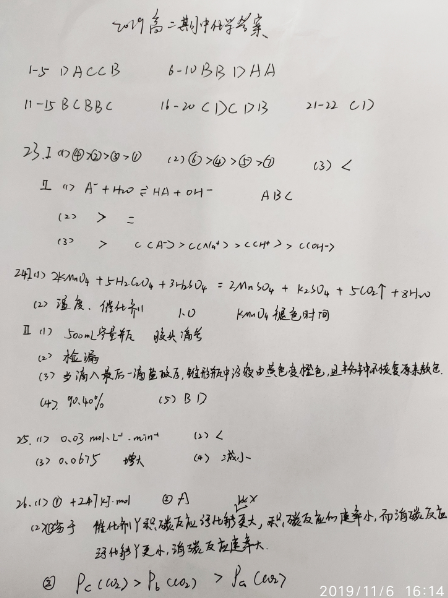 2019高二期中化学答案
1-5 DACCB 6-10 BBDAA
11-15 BCBBC 16-20 CDCDB 21-22 CD
23.I (1) ④>②>③>① (2) ⑥>④>⑤>⑦ (3) <
II (1) A⁻ + H₂O ⇌ HA + OH⁻ ABC
(2) > =
(3) > C(A⁻)>C(Na⁺)>C(H⁺)>C(OH⁻)
24.I(1) 2KMnO₄ + 5H₂C₂O₄ + 3H₂SO₄ = 2MnSO₄ + K₂SO₄ + 5CO₂↑ + 8H₂O
(2) 温度、催化剂 1.0 KMnO₄褪色时间
II (1) 500mL容量瓶 胶头滴管
(2) 检漏
(3) 当滴入最后一滴盐酸后,锥形瓶中溶液由黄色变橙色,且半分钟不恢复原来颜色.
(4) 90.40% (5) BD
25. (1) 0.03 mol·L⁻¹·min⁻¹ (2) <
(3) 0.0675 增大 (4) 减小
26. (1) ① +247 kJ·mol ② A
(2) ①劣于 催化剂Y积碳反应活化能更大,积碳反应的速率小,而消碳反应
活化能Y更小,消碳反应速率大.
② Pc(CO₂) > Pb(CO₂) > Pa(CO₂)
2019/11/6 16:14